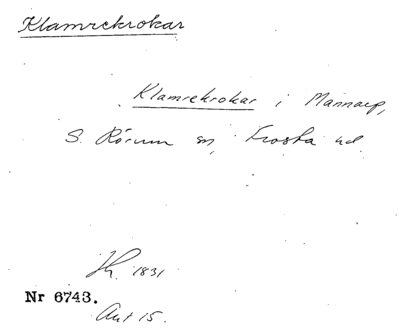 Klamrekrokar
Klamrekrokar i Mannarp,
S. Rörum sn, Frosta hd
1831
Nr 6743.
Ant 15.